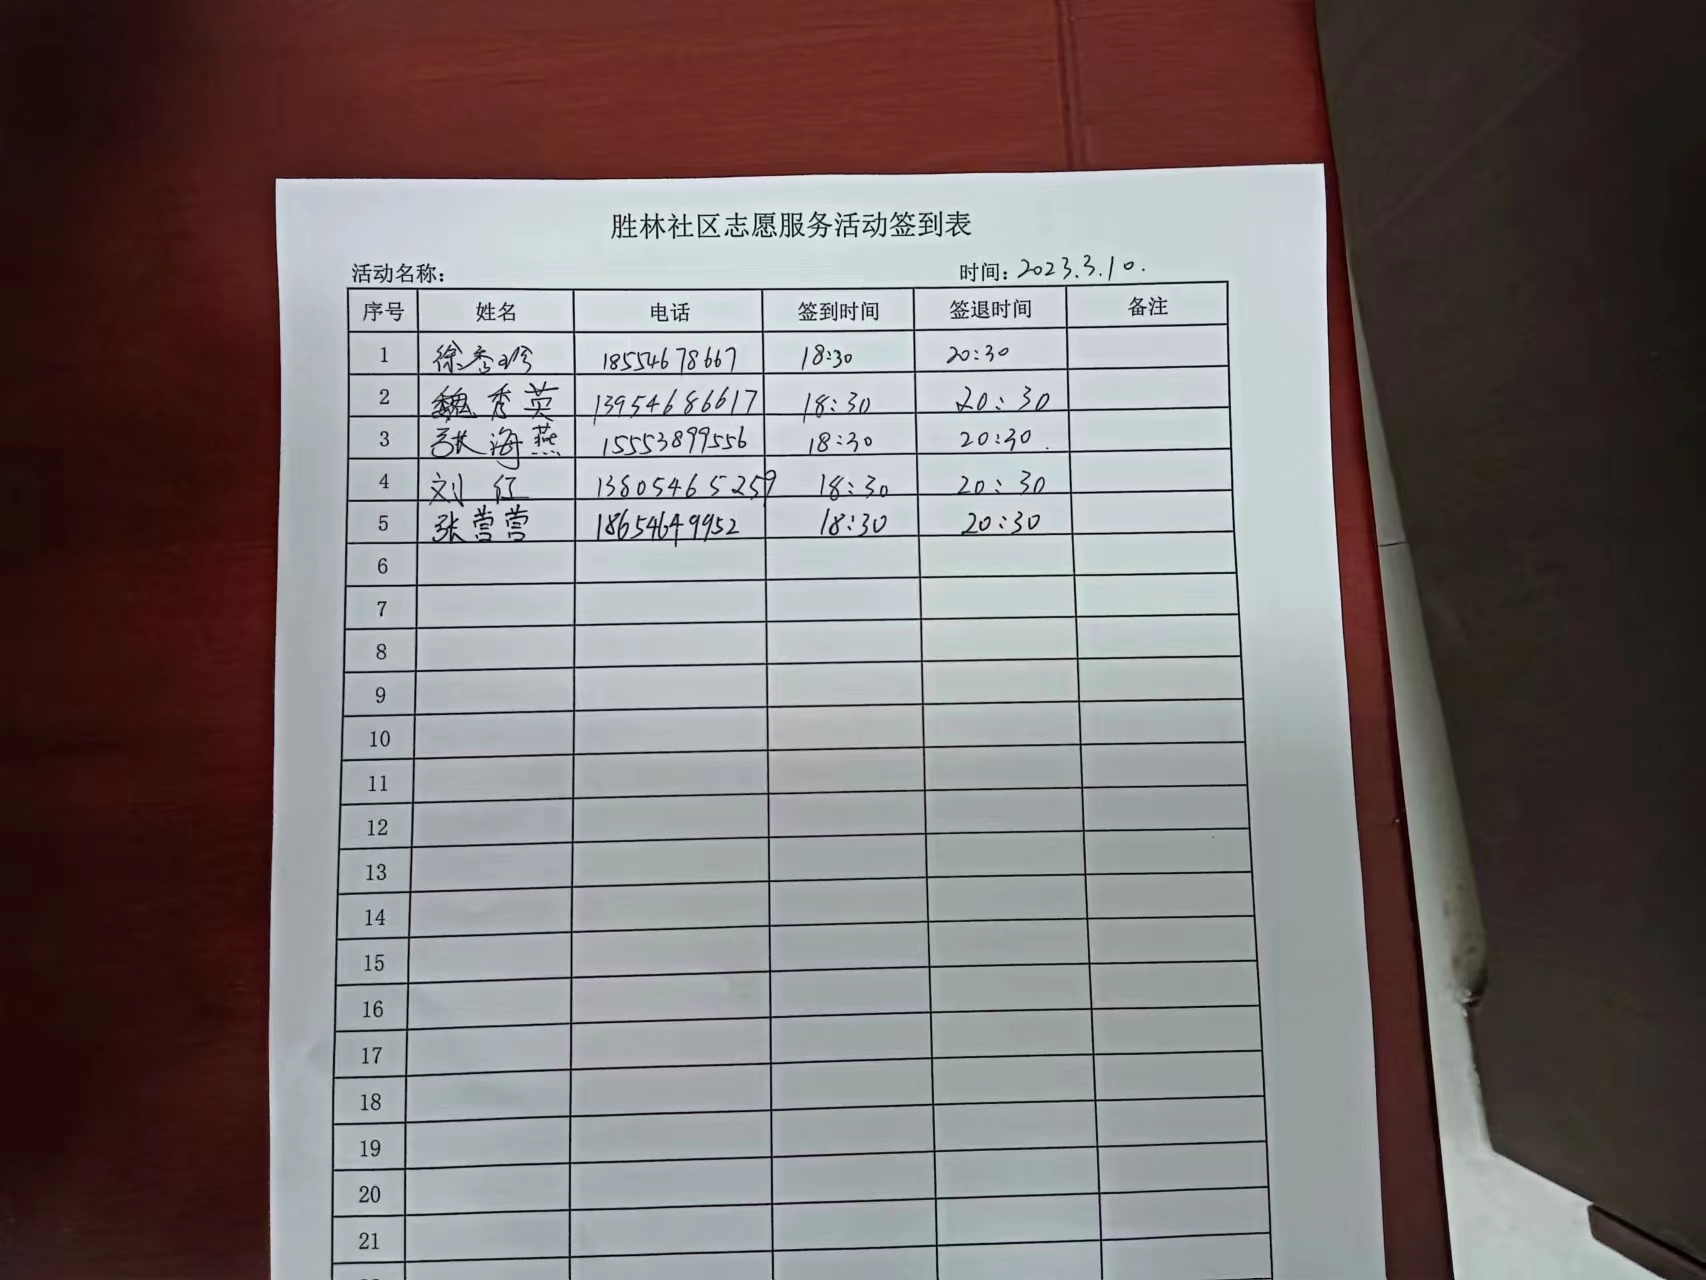 胜林社区志愿服务活动签到表
活动名称: 时间: 2023.3.10.
序号 姓名 电话 签到时间 签退时间 备注
1 徐秀珍 18554678667 18:30 20:30
2 魏秀英 13954686617 18:30 20:30
3 张海燕 15553899556 18:30 20:30
4 刘红 13805465259 18:30 20:30
5 张营营 18654649952 18:30 20:30
6
7
8
9
10
11
12
13
14
15
16
17
18
19
20
21